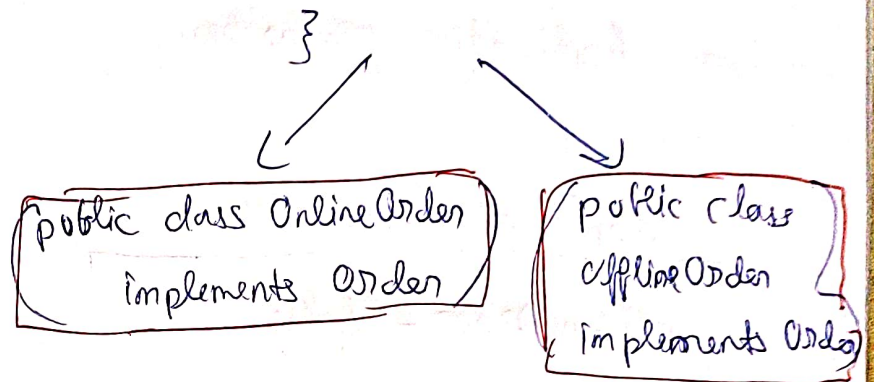 }
public class OnlineOrder
implements Order
public class
OfflineOrder
implements Order